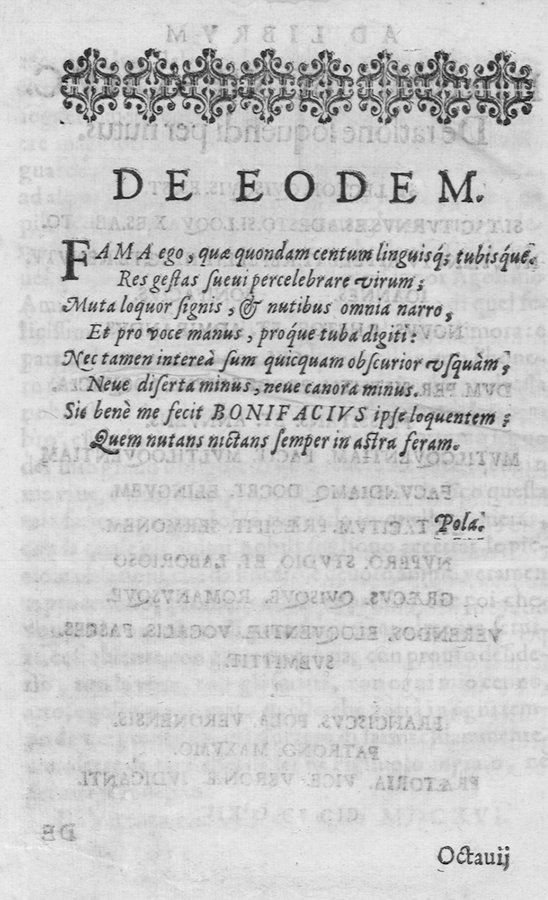 DE EODEM.
FAMA ego, quæ quondam centum linguisq; tubisq́ue
Res gestas sueui percelebrare virum;
Muta loquor signis, & nutibus omnia narro,
Et pro voce manus, proque tuba digiti:
Nec tamen intereà sum quicquam obscurior vsquàm,
Neue diserta minus, neue canora minus.
Sic benè me fecit BONIFACIVS ipse loquentem;
Quem nutans nictans semper in astra feram.
Pola.
Octauij